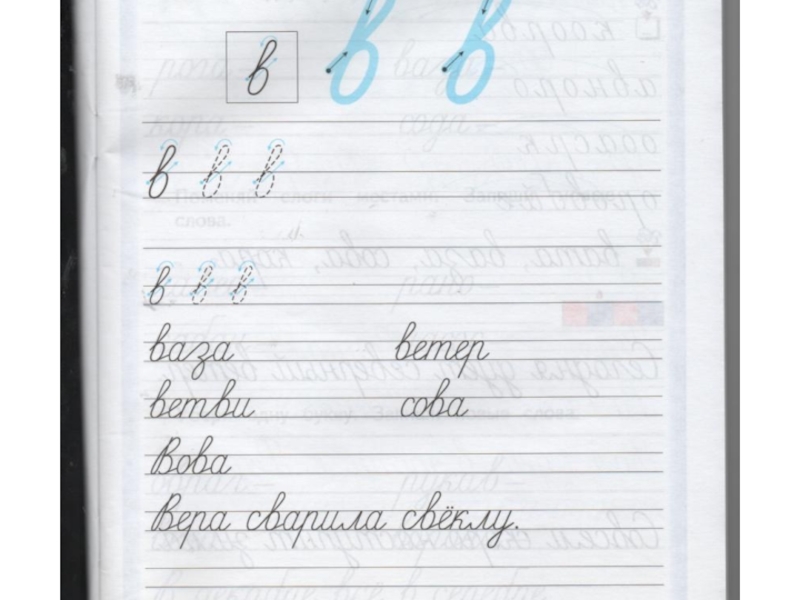 в в в
в в в
в в в
ваза ветер
ветви сова
Вова
Вера сварила свёклу.